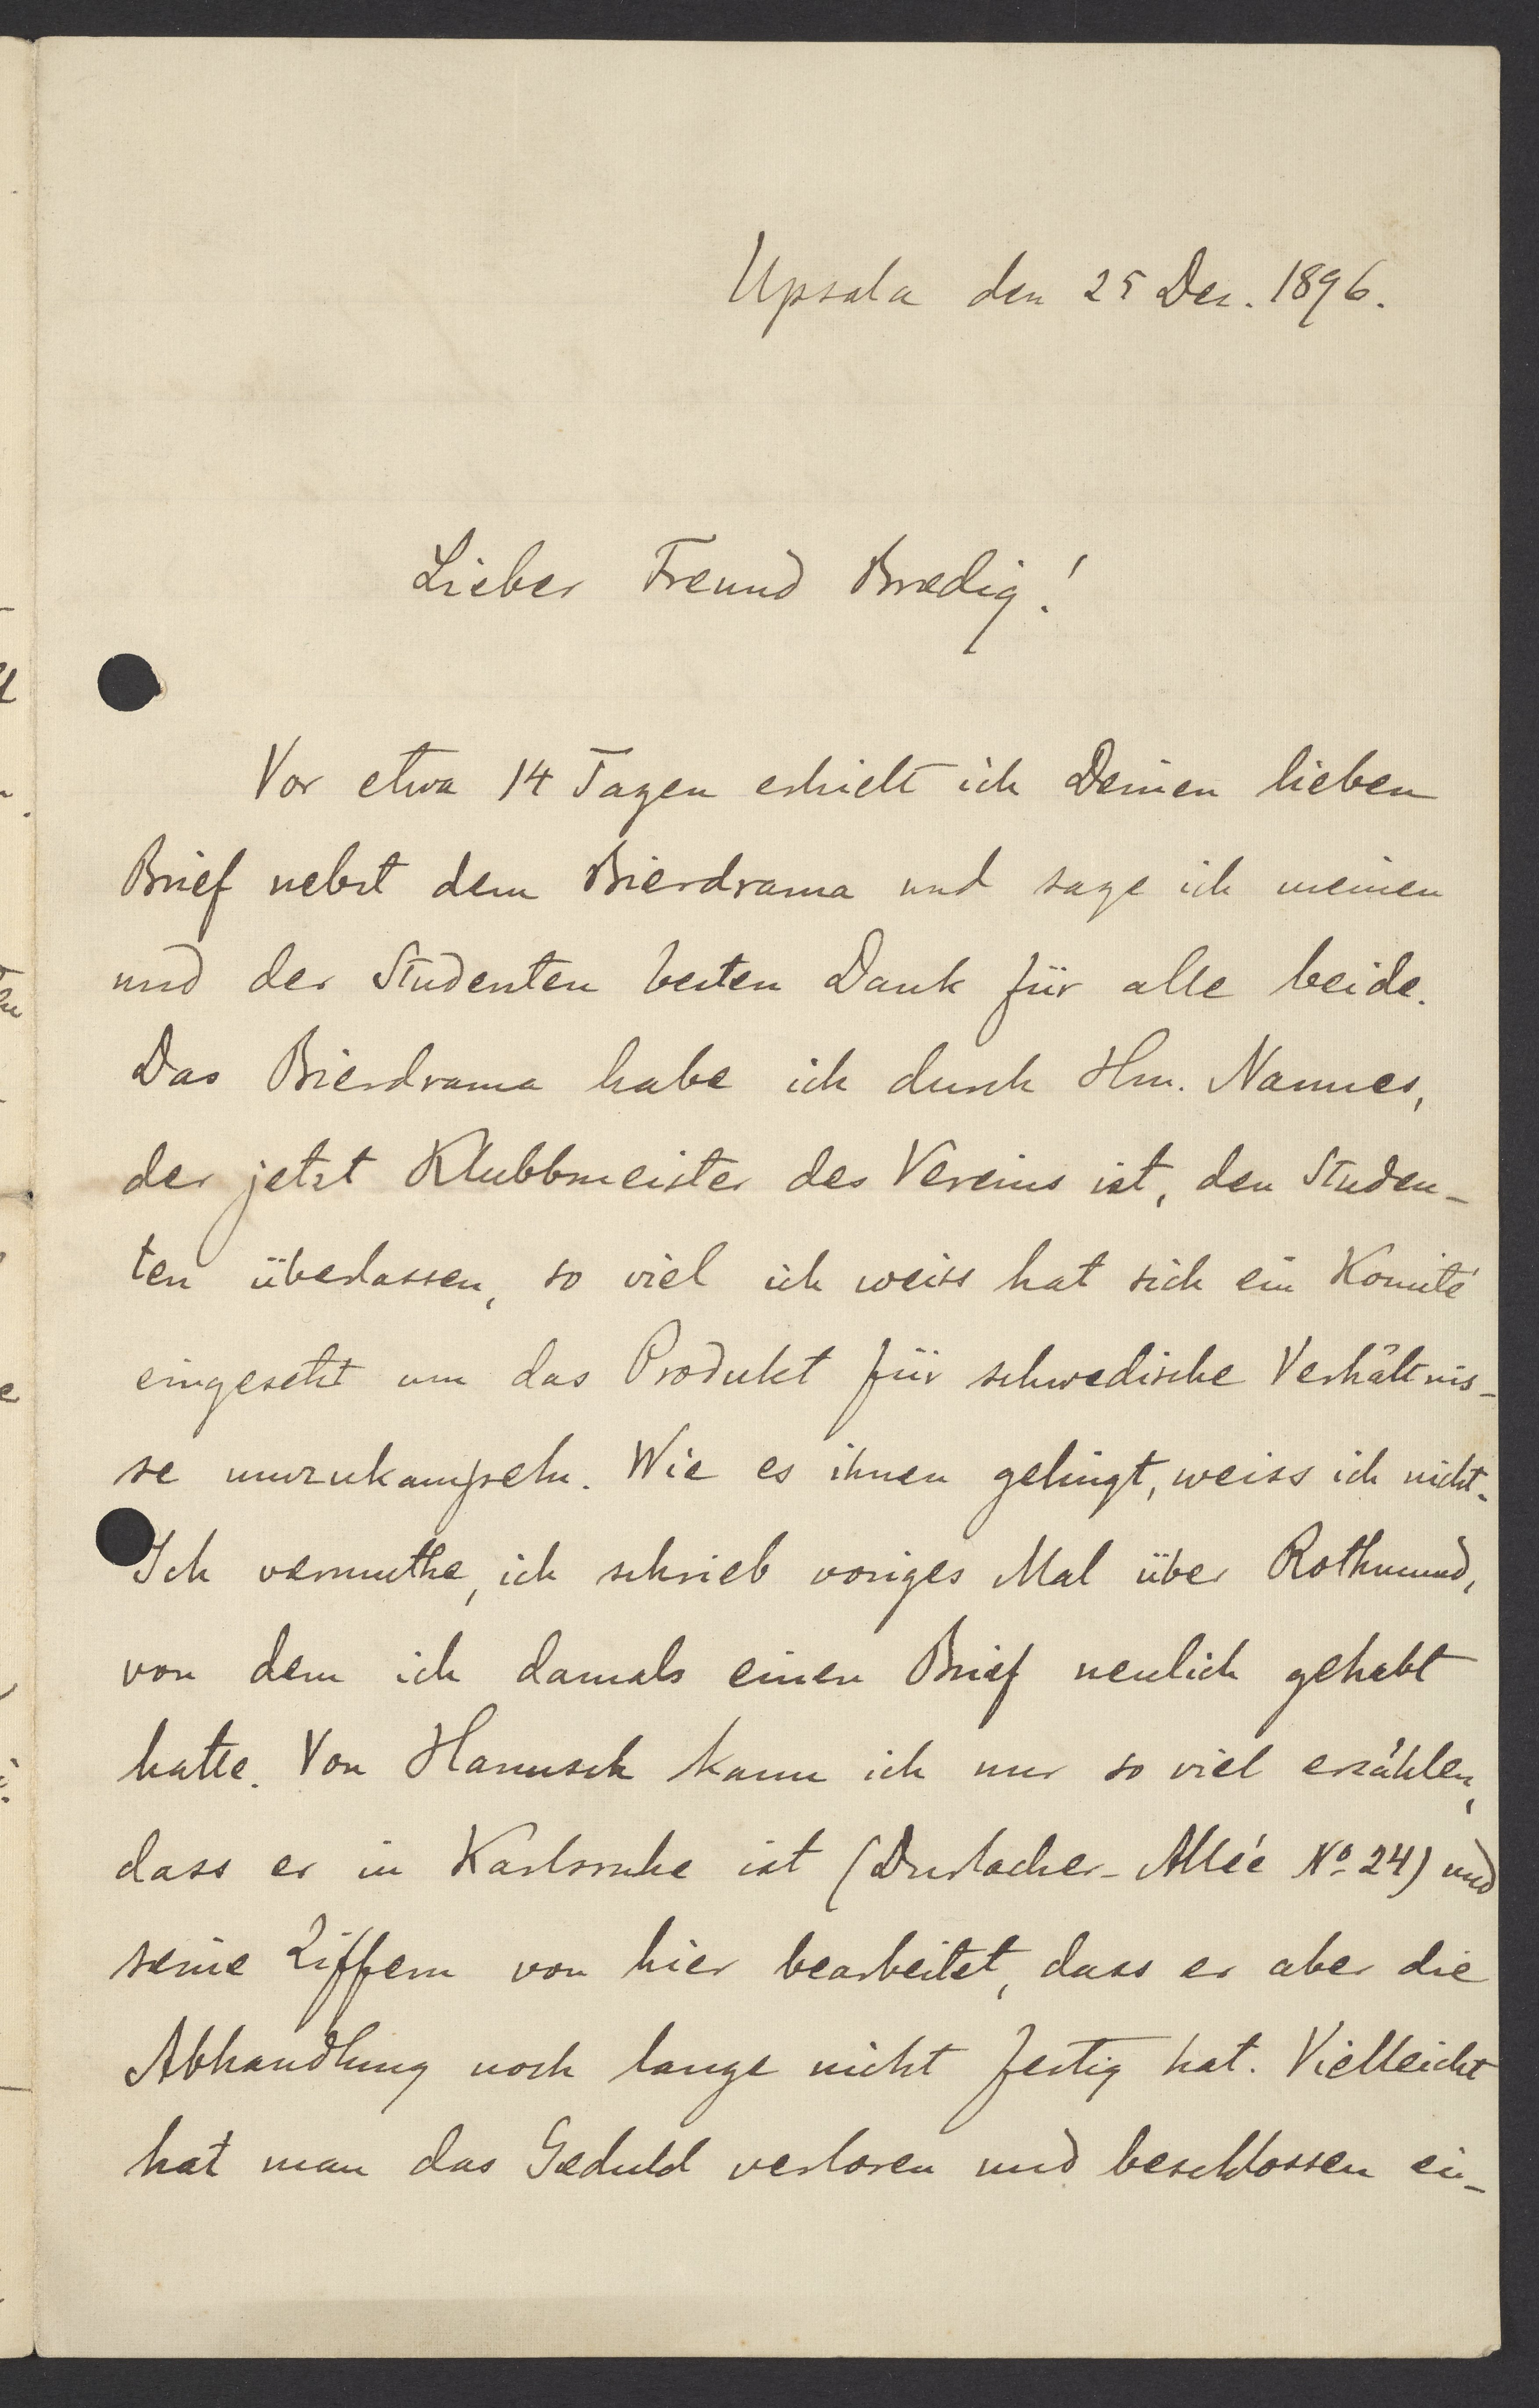 Upsala den 25 Dez. 1896.
Lieber Freund Bredig!
Vor etwa 14 Tagen erhielt ich Deinen lieben
Brief nebst dem Bierdrama und sage ich meinen
und der Studenten besten Dank für alle beide.
Das Bierdrama habe ich durch Hrn. Nannes,
der jetzt Klubbmeister des Vereins ist, den Studen-
ten überlassen, so viel ich weiss hat sich ein Komité
eingesetzt um das Produkt für schwedische Verhältnis-
se umzukampseln. Wie es ihnen gelingt, weiss ich nicht.
Ich vermuthe, ich schrieb voriges Mal über Rothmund,
von dem ich damals einen Brief neulich gehabt
hatte. Von Hanusch kann ich nur so viel erzählen,
dass er in Karlsruhe ist (Durlacher-Allée No 24) und
seine Ziffern von hier bearbeitet, dass er aber die
Abhandlung noch lange nicht fertig hat. Vielleicht
hat man das Geduld verloren und beschlossen ein-